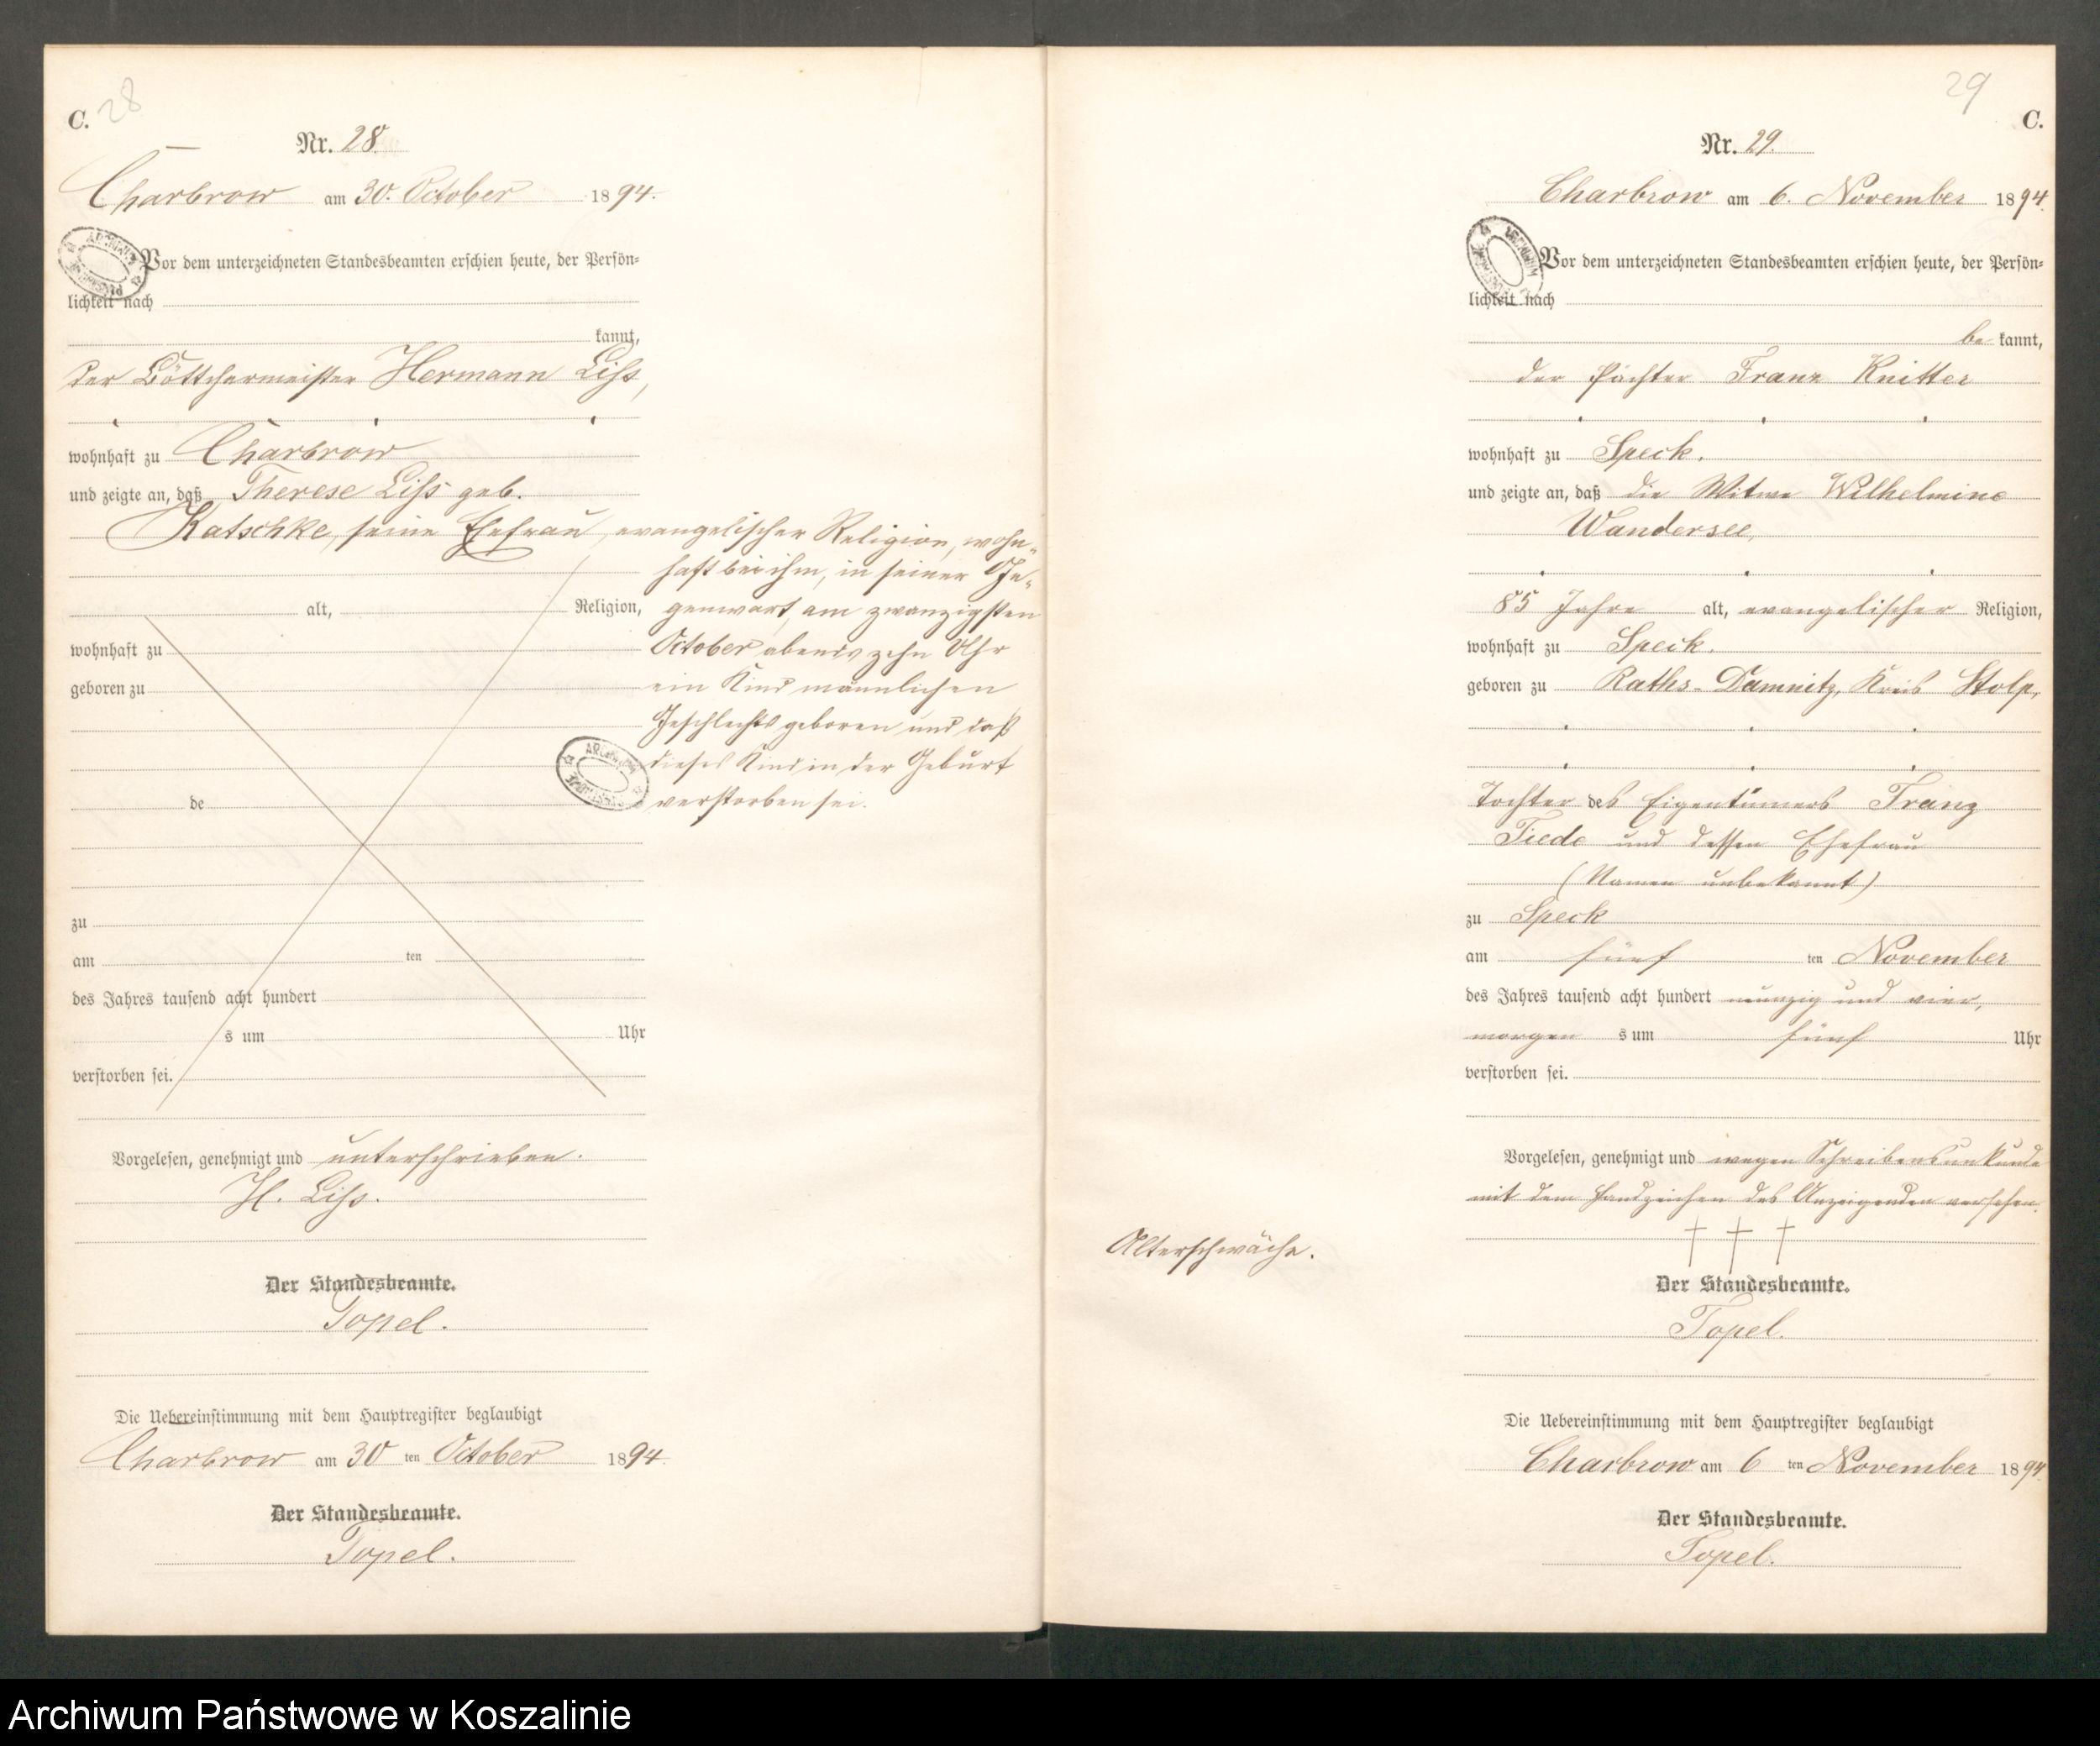 28
C.
Nr. 28.
Charbrow am 30. October 1894.
Vor dem unterzeichneten Standesbeamten erschien heute, der Persön-
lichkeit nach
kannt,
der Böttchermeister Hermann Liss,
wohnhaft zu Charbrow
und zeigte an, daß Therese Liss geb.
Katschke, seine Ehefrau, evangelischer Religion, wohn-
haft bei ihm, in seiner Ge-
alt, Religion, genwart, am zwanzigsten
wohnhaft zu October abends zehn Uhr
geboren zu ein Kind männlichen
Geschlechts geboren und daß
dieses Kind in der Geburt
de verstorben sei.
zu
am ten
des Jahres tausend acht hundert
s um Uhr
verstorben sei.
Vorgelesen, genehmigt und unterschrieben.
H. Liss.
Der Standesbeamte.
Topel.
Die Uebereinstimmung mit dem Hauptregister beglaubigt
Charbrow am 30 ten October 1894.
Der Standesbeamte.
Topel.
29
C.
Nr. 29.
Charbrow am 6. November 1894.
Vor dem unterzeichneten Standesbeamten erschien heute, der Persön-
lichkeit nach
be kannt,
der Pächter Franz Knitter
wohnhaft zu Speck.
und zeigte an, daß die Witwe Wilhelmine
Wandersee,
85 Jahre alt, evangelischer Religion,
wohnhaft zu Speck.
geboren zu Raths-Damnitz, Kreis Stolp,
Tochter des Eigentümers Franz
Tiede und dessen Ehefrau
(Namen unbekannt)
zu Speck
am fünf ten November
des Jahres tausend acht hundert neunzig und vier,
morgen s um fünf Uhr
verstorben sei.
Vorgelesen, genehmigt und wegen Schreibensunkunde
mit dem Handzeichen des Anzeigenden versehen.
† † †
Alterschwäche.
Der Standesbeamte.
Topel.
Die Uebereinstimmung mit dem Hauptregister beglaubigt
Charbrow am 6 ten November 1894.
Der Standesbeamte.
Topel.
Archiwum Państwowe w Koszalinie